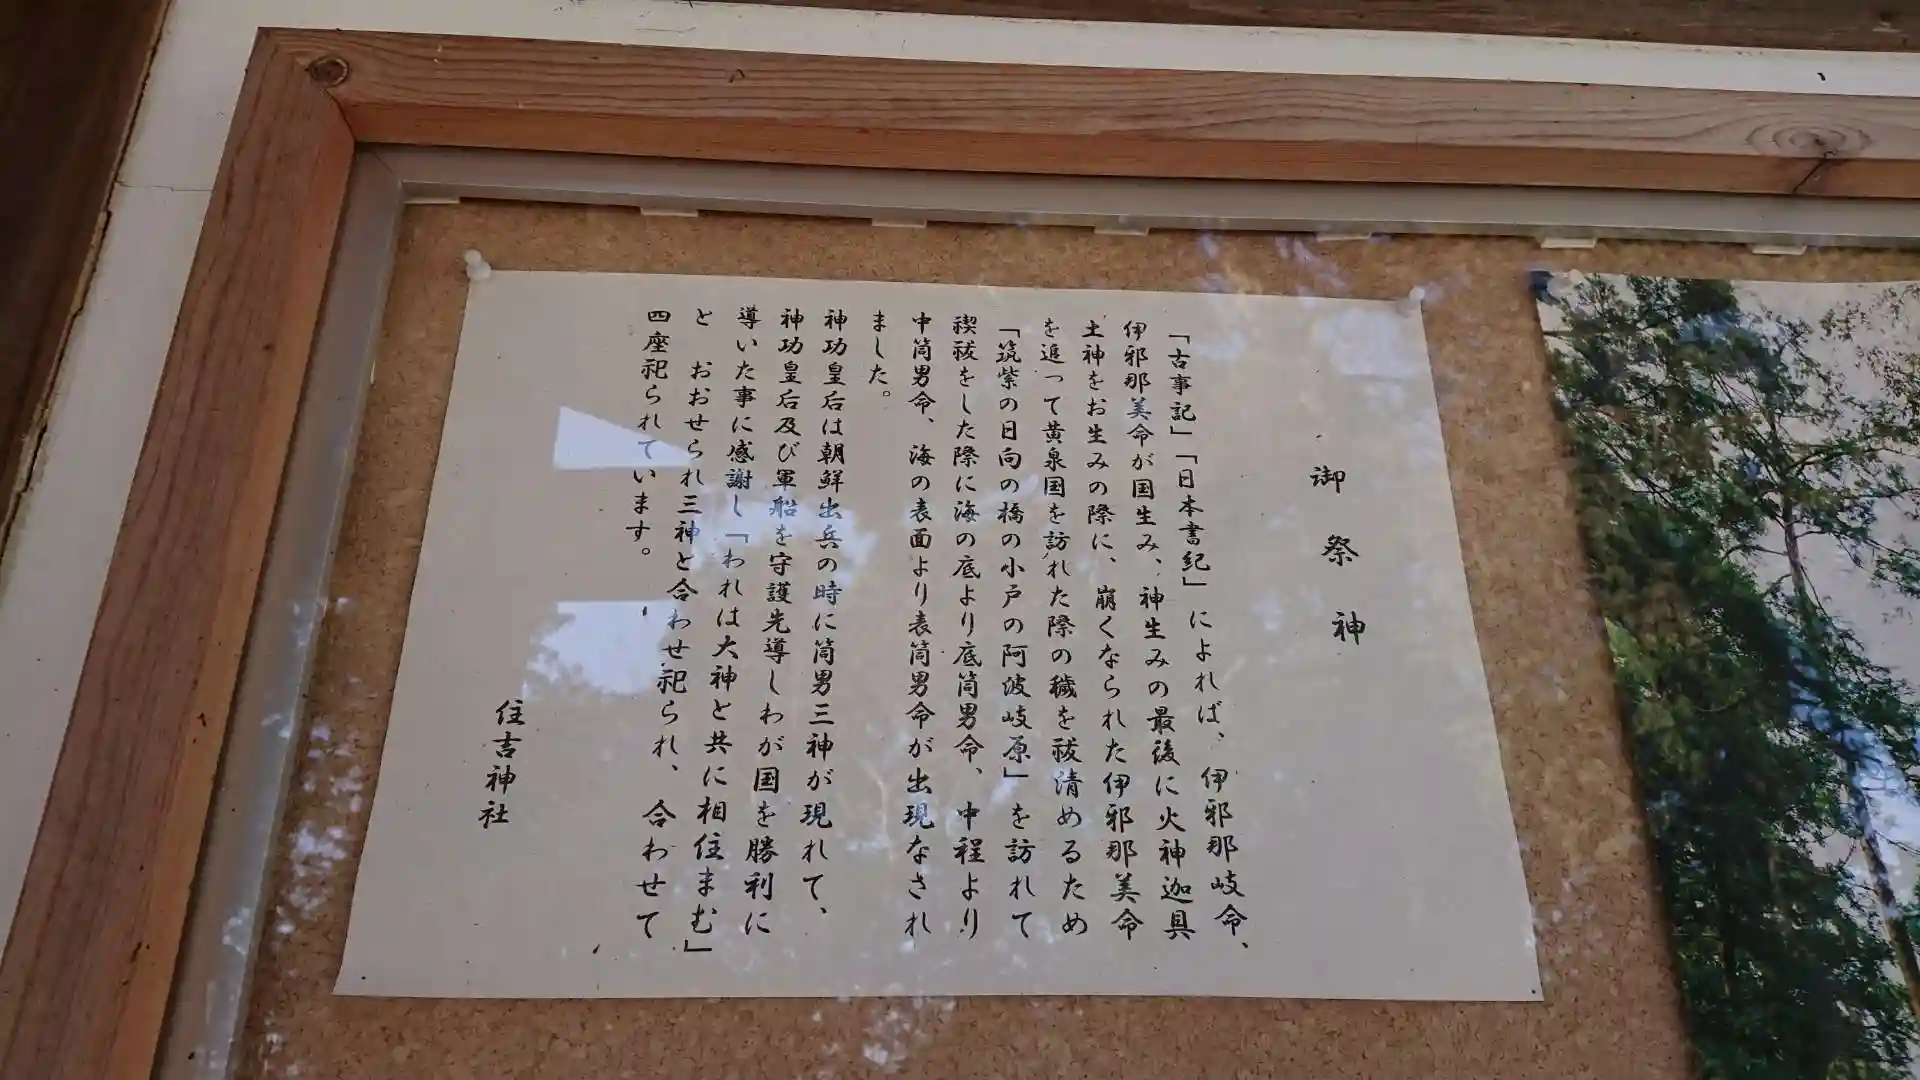 御祭神
「古事記」「日本書紀」によれば、伊邪那岐命、
伊邪那美命が国生み、神生みの最後に火神迦具
土神をお生みの際に、崩くなられた伊邪那美命
を追って黄泉国を訪れた際の穢を祓清めるため
「筑紫の日向の橋の小戸の阿波岐原」を訪れて
禊祓をした際に海の底より底筒男命、中程より
中筒男命、海の表面より表筒男命が出現なされ
ました。
神功皇后は朝鮮出兵の時に筒男三神が現れて、
神功皇后及び軍船を守護先導しわが国を勝利に
導いた事に感謝し「われは大神と共に相住まむ」
と おおせられ三神と合わせ祀られ、合わせて
四座祀られています。
住吉神社